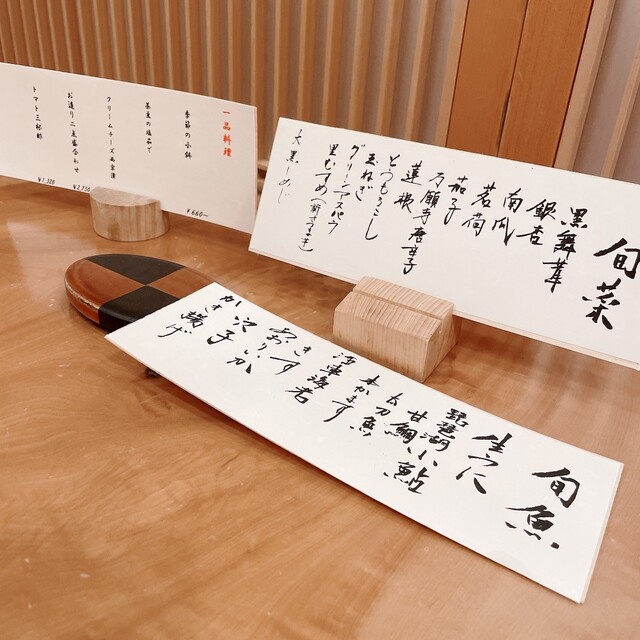 一品料理
季節の小鉢
¥660~
茶豆の塩茹で
クリームチーズ西京漬
お造り二点盛合わせ
¥2,750
トマト三杯酢
¥1,320
旬菜
黒舞茸
銀杏
南瓜
茗荷
茄子
万願寺唐辛子
蓮根
とうもろこし
玉ねぎ
グリーンアスパラ
里むすめ(新さつま芋)
大黒しめじ
旬魚
生うに
琵琶湖小鮎
甘鯛
太刀魚
本かます
活車海老
きす
あおりいか
穴子
かき揚げ